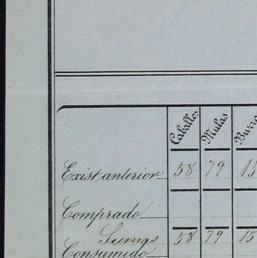 Caballos Mulas Burros
Exist anterior 58 79 15
Comprado
Sumas 58 79 15
Consumido